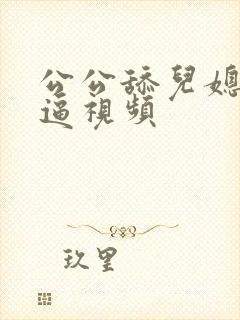 公公舔兒媳
逼視頻
玖里